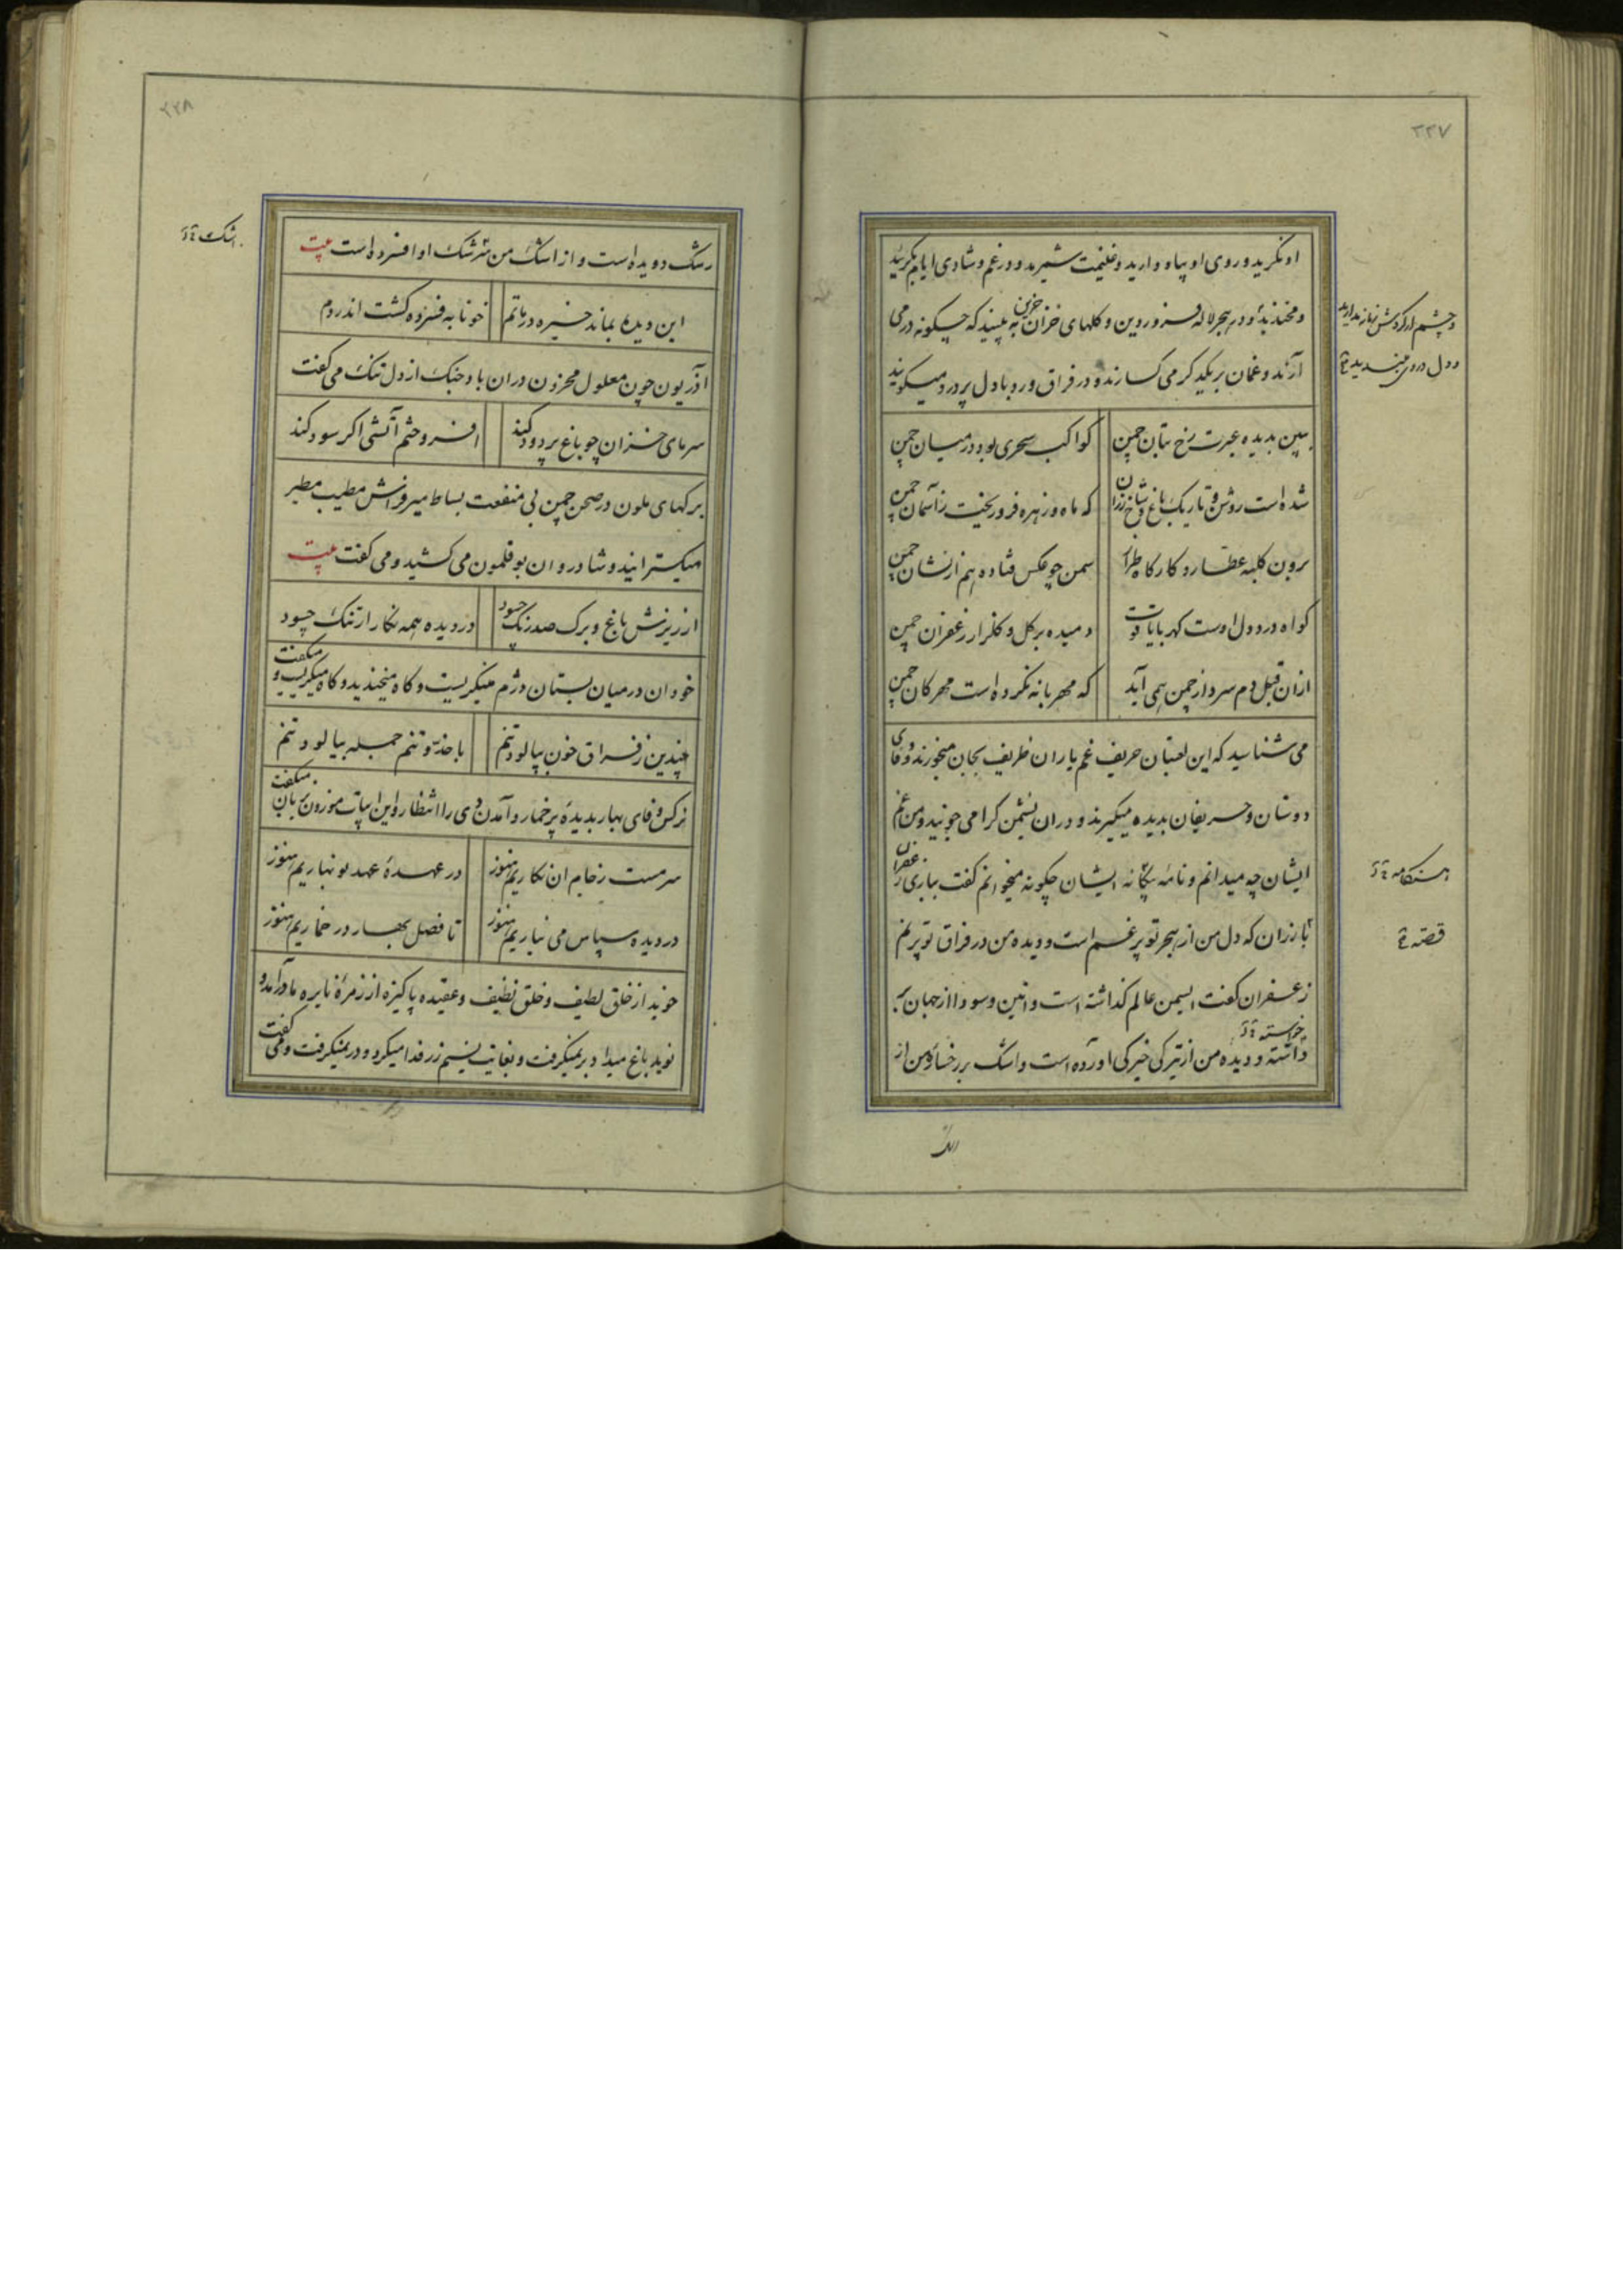 ۲۲۷
او نکرید و روی او بیاد دارید و غنیمت شمرید و در غم و شادی ایام بکریید
و مخندید و در هجر لاله فروردین و کلهای خزان خزین به بینید که چکونه درمی
آرند و غمان بریکدیکر می کسارند و در فراق ورد با دل پر درد میکویند
ببین بدیده عبرت رخ بتان چمن
کواکب سحری بود در میان چمن
شده است روشن و تاریک باغ و شاخ رزان
که ماه و زهره فرو ریخت زآسمان چمن
برون کلبه عطار و کارکاه طراز
سمن چو عکس فتاده بهم از نشان چمن
کواه درد دل اوست کهربا یاقوت
دمیده بر کل و کلزار زعفران چمن
ازان قبل دم سرد از چمن همی آید
که مهربانه نکرده است مهرکان چمن
می شناسید که این لعبتان حریف غم یاران ظریف بجان میخورند و وفای
دوستان و حریفان بدیده میکیرند و دران نشیمن کرا می جویند و من غم
ایشان چه میدانم و نامه یکانه ایشان چکونه میخوانم کفت باری زعفران
با رزان که دل من از هجر تو پر غم است و دیده من در فراق تو پر نم
زعفران کفت یاسمن عالم کذاشته است و انین و سودا از جهان
داشته و دیده من از تیرکی خیرکی آورده است و اشک بر رخساره من از
و چشم از کردش زمانه مدارید
و دل در وی مبندید
هنکامه
قصه
خواسته
۲۲۸
رشک دویده است و از اشک من سرشک او افسرده است بیت
این دیده بماند خیره در ماتم
خونابه فسرده کشت اندر دم
آذریون چون معلول محزون دران باد خنک از دل تنک می کفت
سرمای خزان چو باغ پر دود کند
افروختم آتشی اکر سود کند
برکهای ملون در صحن چمن بی منفعت بساط میر فراش مطیب مطیر
میکسترانید و شادروان بوقلمون می کشید و می کفت بیت
از ریزش باغ و برک صد رنک چه سود
در دیده همه نکار ارتنک چه سود
خودان درمیان بستان دژم میکریست و کاه میخندید و کاه میکریست و میکفت
چندین ز فراق خون بپالود تنم
با خنده و تنم جمله بیالود تنم
نرکس وفای بهار بدیده پرخمار و آمدن دی را انتظار و این ابیات موزون بزبان میکفت
سرمست ز جام ان نکاریم هنوز
در عهدۀ عهد نوبهاریم هنوز
در دیده سپاس می نیاریم هنوز
تا فصل بهار در خماریم هنوز
خوید از خلق لطیف و خلق نظیف و عقیده پاکیزه از زمرۀ نایره ما درآمد و
نوید باغ میداد برمیکرفت و بغایت نسیم زر فدا میکرد و درمیکرفت و می کفت
اشک